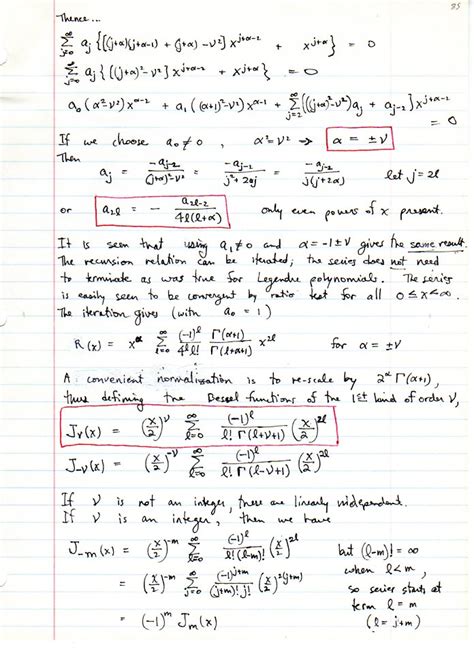 35
Thence...
∑_{j=0}^{∞} a_j {[(j+α)(j+α-1) + (j+α) - ν²] x^{j+α-2} + x^{j+α}} = 0
∑_{j=0}^{∞} a_j {[(j+α)² - ν²] x^{j+α-2} + x^{j+α}} = 0
a_0 (α²-ν²) x^{α-2} + a_1 ((α+1)²-ν²) x^{α-1} + ∑_{j=2}^{∞} {[(j+α)²-ν²] a_j + a_{j-2}} x^{j+α-2} = 0
If we choose a_0 ≠ 0, α² = ν² → α = ±ν
Then
a_j = -a_{j-2} / ((j+α)²-ν²) = -a_{j-2} / (j² + 2αj) = -a_{j-2} / (j(j+2α)) let j = 2l
or a_{2l} = - a_{2l-2} / (4l(l+α)) only even powers of x present.
It is seen that using a_1 ≠ 0 and α = -1 ± ν gives the same result.
The recursion relation can be iterated; the series does not need
to terminate as was true for Legendre polynomials. The series
is easily seen to be convergent by ratio test for all 0 ≤ x < ∞.
The iteration gives (with a_0 = 1)
R(x) = x^α ∑_{l=0}^{∞} (-1)^l / (4^l l!) Γ(α+1) / Γ(l+α+1) x^{2l} for α = ±ν
A convenient normalization is to re-scale by 2^α Γ(α+1),
thus defining the Bessel functions of the 1st kind of order ν,
J_ν(x) = (x/2)^ν ∑_{l=0}^{∞} (-1)^l / (l! Γ(l+ν+1)) (x/2)^{2l}
J_{-ν}(x) = (x/2)^{-ν} ∑_{l=0}^{∞} (-1)^l / (l! Γ(l-ν+1)) (x/2)^{2l}
If ν is not an integer, these are linearly independent.
If ν is an integer, then we have
J_{-m}(x) = (x/2)^{-m} ∑_{l=0}^{∞} (-1)^l / (l! (l-m)!) (x/2)^{2l} but (l-m)! = ∞
when l < m,
= (x/2)^{-m} ∑_{j=0}^{∞} (-1)^{j+m} / ((j+m)! j!) (x/2)^{2(j+m)} so series starts at
term l = m
= (-1)^m J_m(x) (l = j+m)